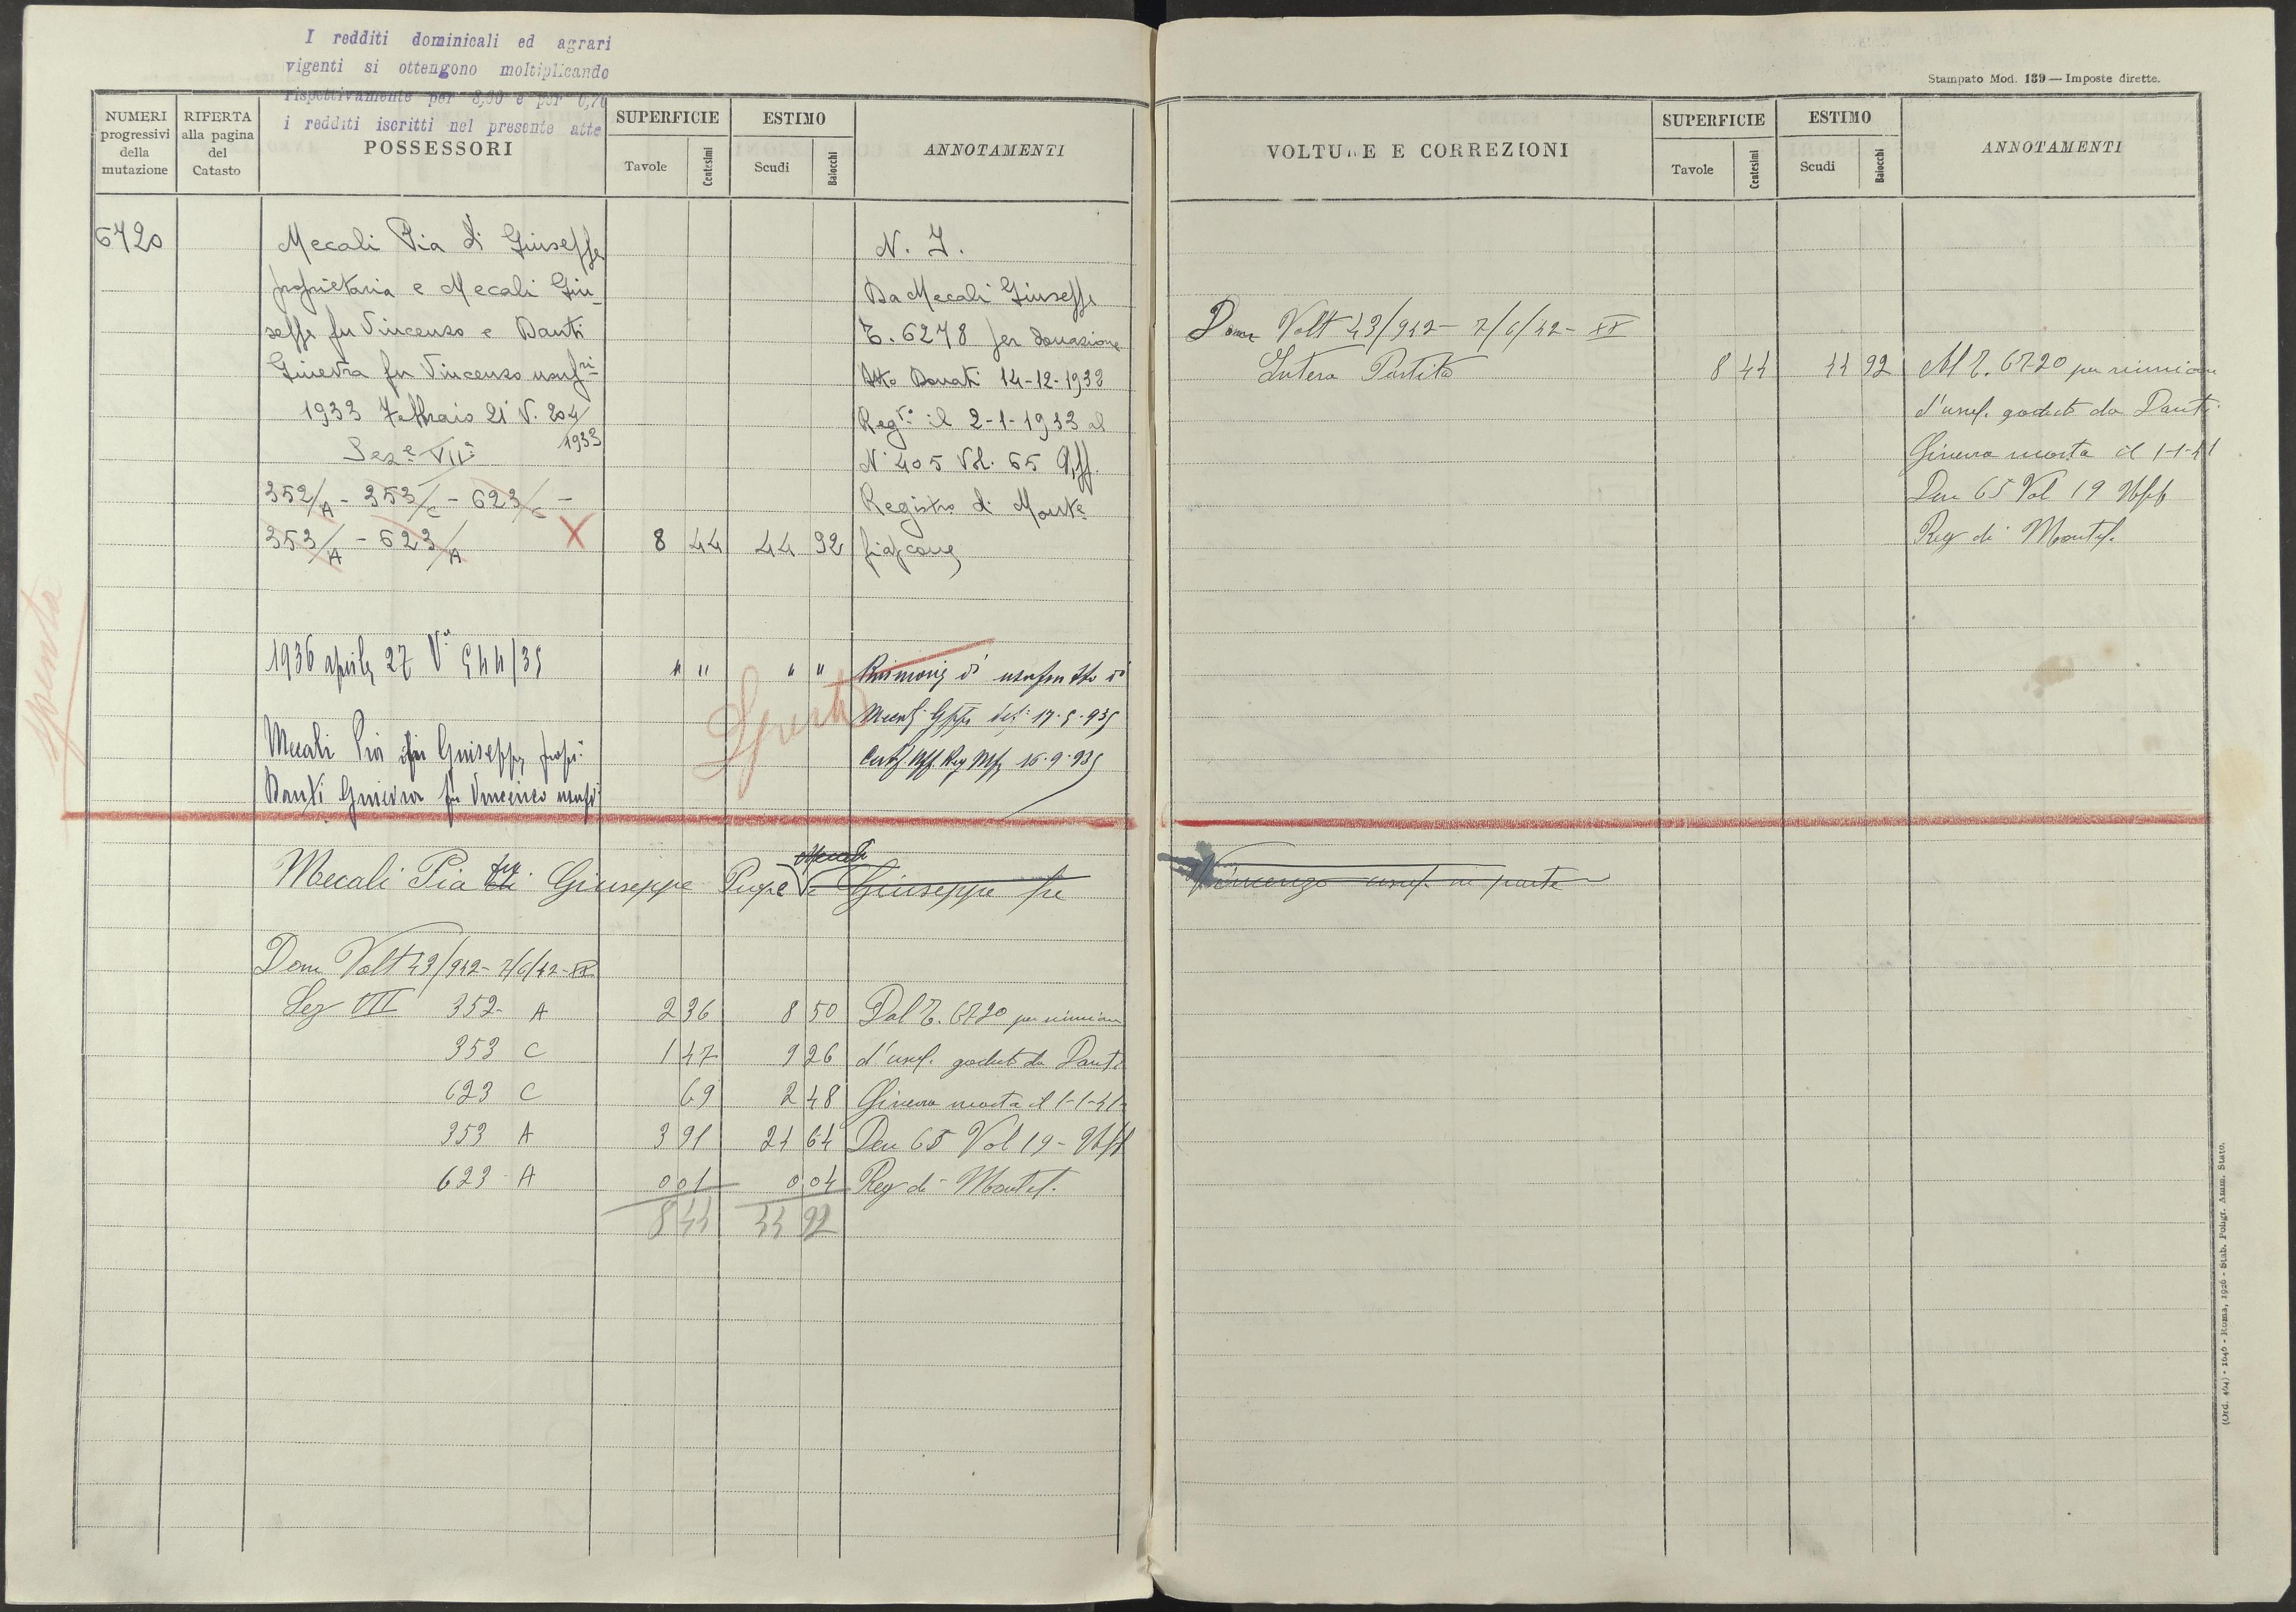 I redditi dominicali ed agrari
vigenti si ottengono moltiplicando
rispettivamente per 8,90 e per 0,70
i redditi iscritti nel presente atto
NUMERI progressivi della mutazione
RIFERTA alla pagina del Catasto
POSSESSORI
SUPERFICIE
Tavole Centesimi
ESTIMO
Scudi Baiocchi
ANNOTAMENTI
6720
Mecali Pia di Giuseppe
proprietaria e Mecali Giu-
seppe fu Vincenzo e Danti
Ginevra fu Vincenzo usufri
1933 Febbraio 21 V. 204/1933
Sez.e VII
352/A - 353/C - 623/C -
353/A - 623/A X 8 44 44 92
N. I.
Da Mecali Giuseppe
T. 6278 per donazione
Atto Donati 14-12-1932
Reg.to il 2-1-1933 al
N. 405 Vol. 65 Uff.
Registro di Monte
fiascone
Spenta
1936 aprile 27 V. 544/35 " " " "
Riunione di usufrutto di
17.5.935
16.9.935
Spenta
Mecali Pia fu Giuseppe propr:
Danti Ginevra fu Vincenzo usufr:
Mecali Pia fu Giuseppe Propr e Mecali Giuseppe fu
Dom Volt 43/942 - 7/6/42 - XX
Sez VII 352 A 2 36 8 50 Dal T. 6720 per riunione
353 C 1 47 9 26 d'usuf. goduto da Danti
623 C 69 2 48 Ginevra morta il 1-1-41
353 A 3 91 24 64 Den 65 Vol 19 - Uff
623 A 0 01 0 04 Reg di Montef.
8 44 44 92
Stampato Mod. 139 — Imposte dirette.
VOLTURE E CORREZIONI
SUPERFICIE
Tavole Centesimi
ESTIMO
Scudi Baiocchi
ANNOTAMENTI
Dom Volt 43/942 - 7/6/42 - XX
Intera Partita 8 44 44 92 Al T. 6720 per riunione
d'usuf. goduto da Danti
Ginevra morta il 1-1-41
Den 65 Vol 19 Uff
Reg di Montef.
Vincenzo usuf. in parte
(Ord. 464) - 1046 - Roma, 1926 - Stab. Poligr. Amm. Stato.